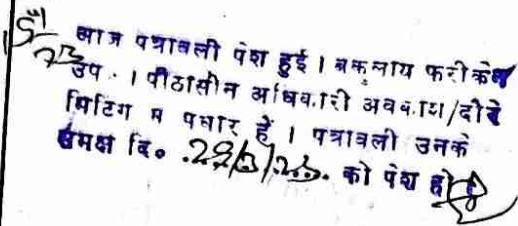 आज पत्रावली पेश हुई । वकलाय फरीकेन
उप. । पीठासीन अधिकारी अवकाश/दौरे
मिटिंग म पधार हैं । पत्रावली उनके
समक्ष दि० .22/3/23. को पेश हो ।